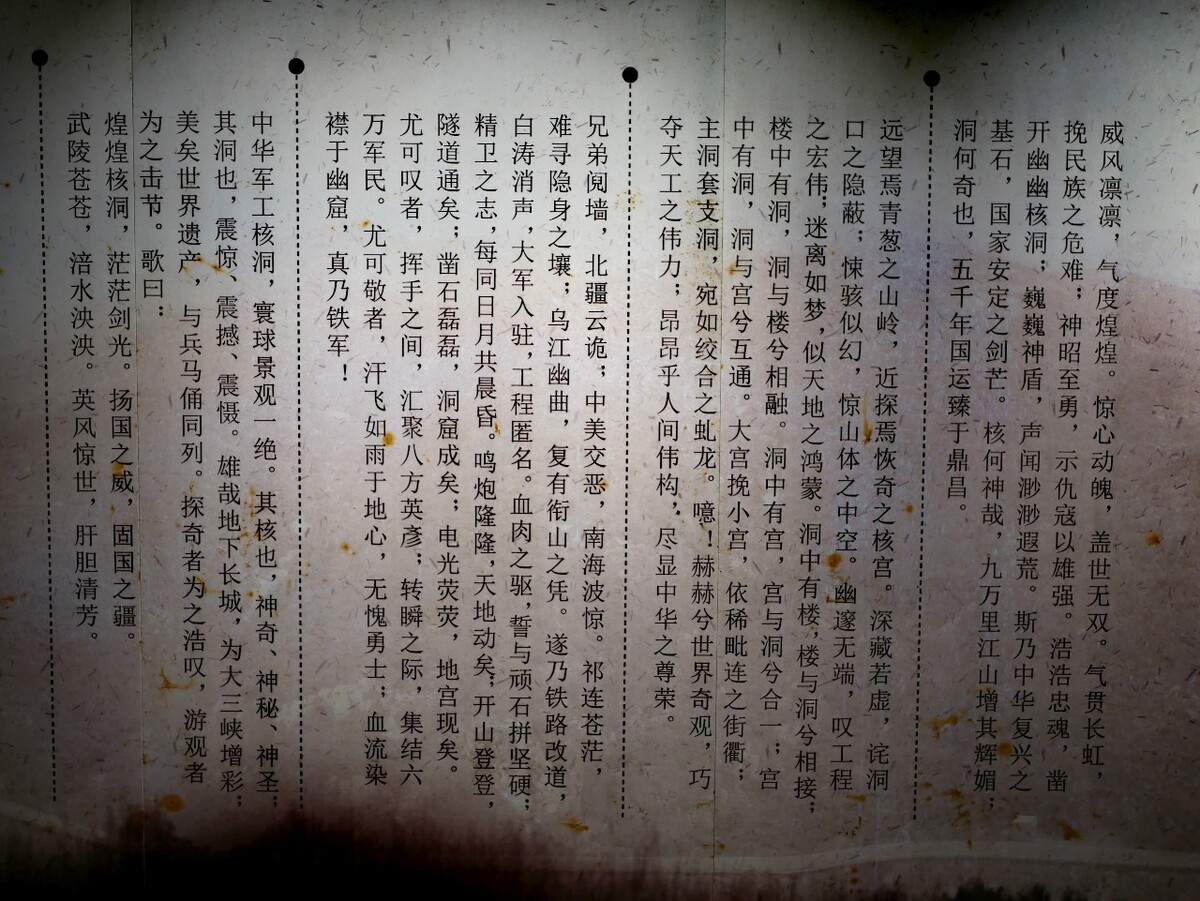 威风凛凛，气度煌煌。惊心动魄，盖世无双。气贯长虹，
挽民族之危难；神昭至勇，示仇寇以雄强。浩浩忠魂，凿
开幽幽核洞；巍巍神盾，声闻渺渺遐荒。斯乃中华复兴之
基石，国家安定之剑芒。核何神哉，九万里江山增其辉媚；
洞何奇也，五千年国运臻于鼎昌。
远望焉青葱之山岭，近探焉恢奇之核宫。深藏若虚，诧洞
口之隐蔽；悚骇似幻，惊山体之中空。幽邃无端，叹工程
之宏伟；迷离如梦，似天地之鸿蒙。洞中有楼，楼与洞兮相接；
楼中有洞，洞与楼兮相融。洞中有宫，宫与洞兮合一；宫
中有洞，洞与宫兮互通。大宫挽小宫，依稀毗连之街衢；
主洞套支洞，宛如绞合之虬龙。噫！赫赫兮世界奇观，巧
夺天工之伟力；昂昂乎人间伟构，尽显中华之尊荣。
兄弟阋墙，北疆云诡；中美交恶，南海波惊。祁连苍茫，
难寻隐身之壤；乌江幽曲，复有衔山之凭。遂乃铁路改道，
白涛消声，大军入驻，工程匿名。血肉之驱，誓与顽石拼坚硬；
精卫之志，每同日月共晨昏。鸣炮隆隆，天地动矣；开山登登，
隧道通矣；凿石磊磊，洞窟成矣；电光荧荧，地宫现矣。
尤可叹者，挥手之间，汇聚八方英彦；转瞬之际，集结六
万军民。尤可敬者，汗飞如雨于地心，无愧勇士；血流染
襟于幽窟，真乃铁军！
中华军工核洞，寰球景观一绝。其核也，神奇、神秘、神圣；
其洞也，震惊、震撼、震慑。雄哉地下长城，为大三峡增彩；
美矣世界遗产，与兵马俑同列。探奇者为之浩叹，游观者
为之击节。歌曰：
煌煌核洞，茫茫剑光。扬国之威，固国之疆。
武陵苍苍，涪水泱泱。英风惊世，肝胆清芳。